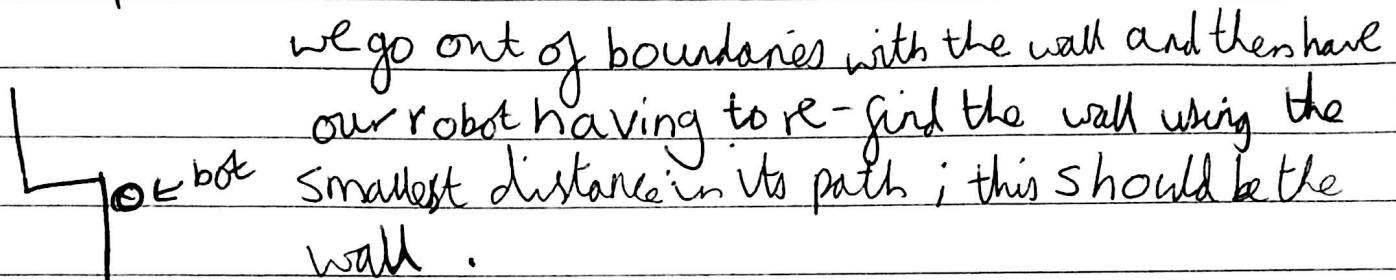 we go out of boundaries with the wall and then have
our robot having to re-find the wall using the
bot smallest distance in its path ; this should be the
wall .